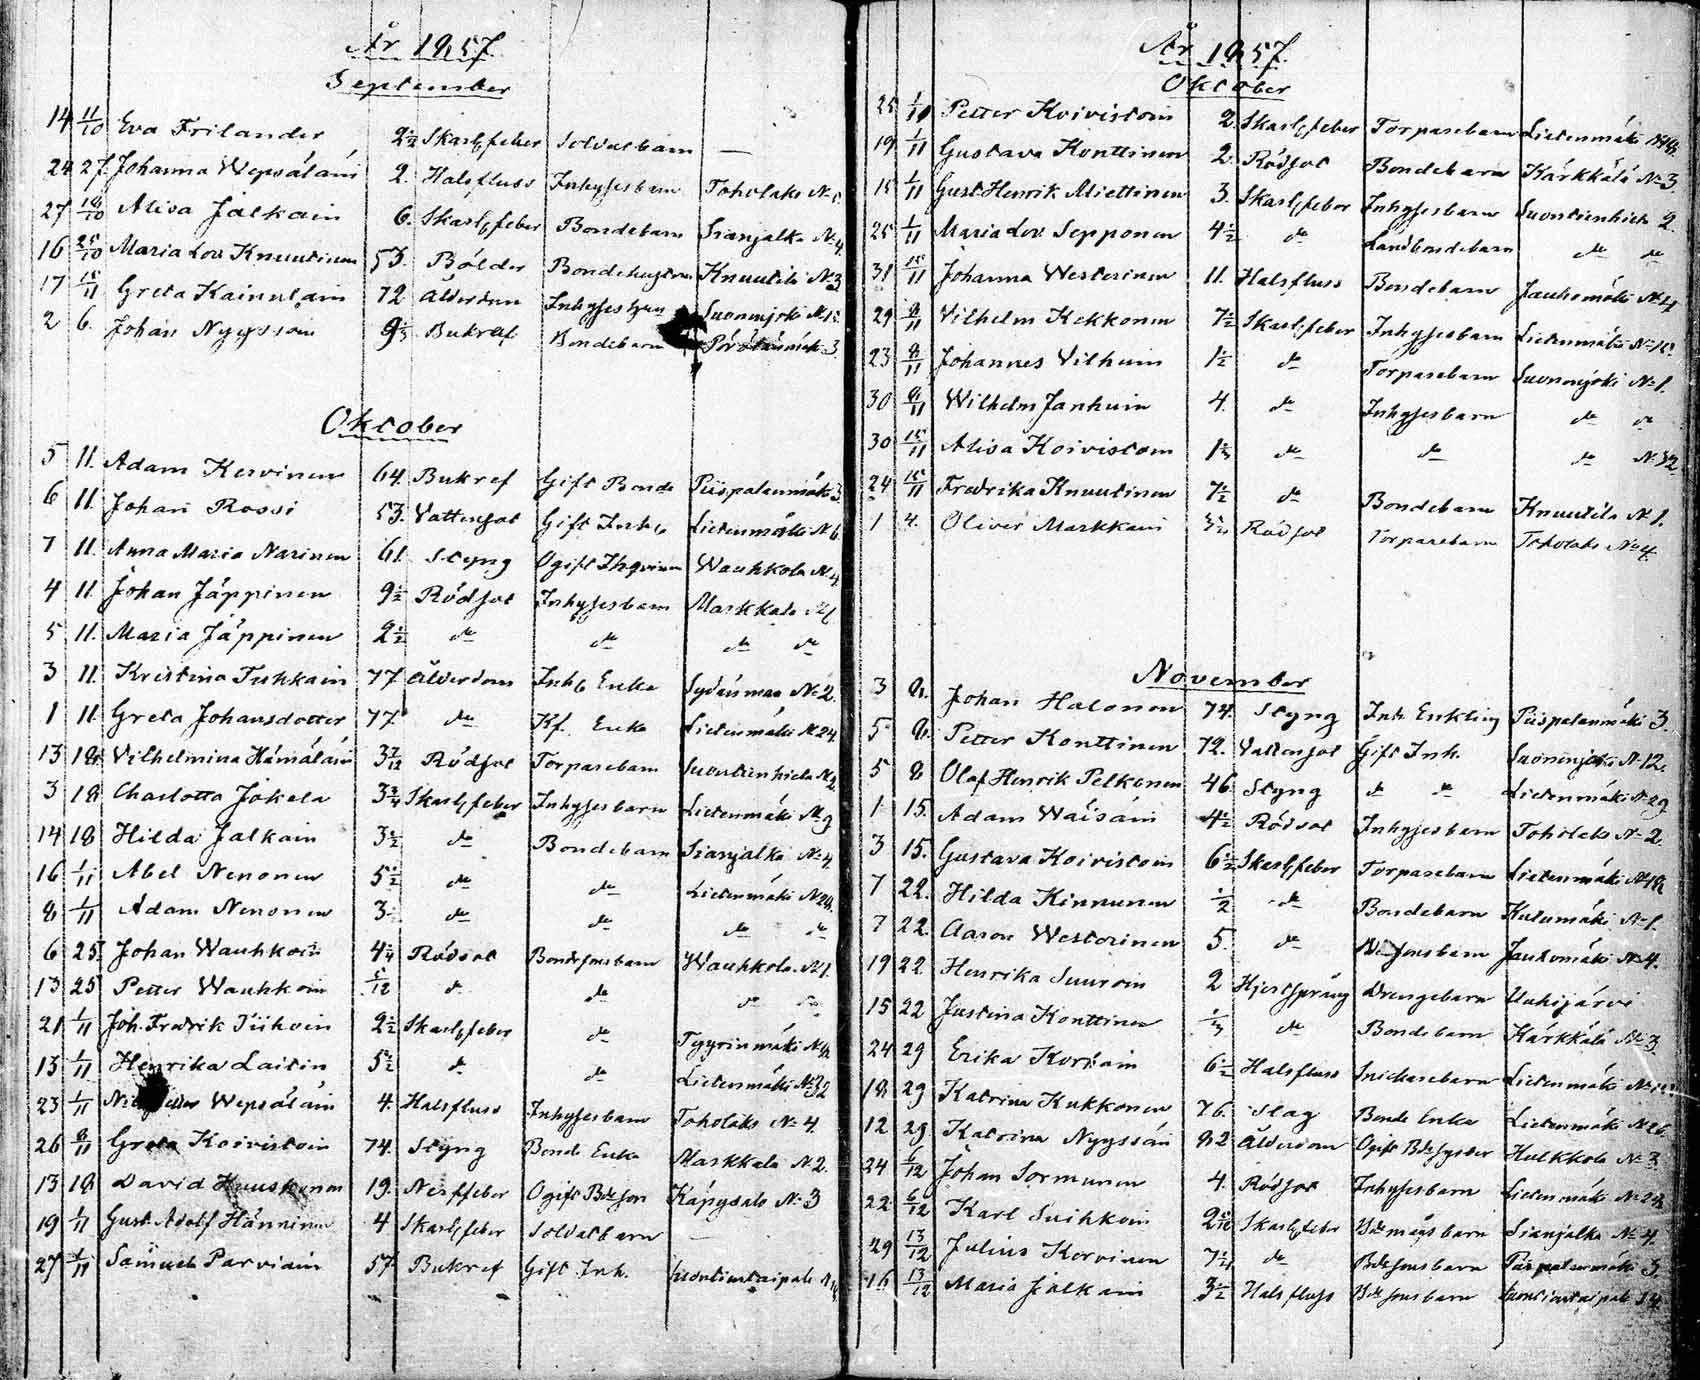 År 1857.
September
14 11/10 Eva Frilander 2 1/2 Skarl.feber Soldatbarn —
24 27. Johanna Wepsäläin 2. Halsfluss Inhysesbarn Toholaks N
27 18/10 Alisa Jalkain 6. Skarl.feber Bondebarn Sianjalka N 4.
16 25/10 Maria Lov. Knuutinen 53. Bölder Bondehustru Knuutila N 3
17 15/11 Greta Kainulain 72 Ålderdom Suonenjoki N 12.
2 6. Johan Nyyssöin 9 Bukref Bondebarn 3.
Oktober
5 11. Adam Kervinen 64. Bukref Gift Bonde Piispalanmäki 3.
6 11. Johan Rossi 53. Vattusot Gift Inh. Lietenmäki N 6.
7 11. Anna Maria Narinen 61. Styng Ogift Wauhkola N 4.
4 11. Johan Jäppinen 9 1/2 Rödsot Inhysesbarn Markkala N 1
5 11. Maria Jäppinen 2 1/2 do do do do
3 11. Kristina Tuhkain 77 Ålderdom Inh. Enka Sydänmaa N 2.
1 11. Greta Johansdotter 77. do Kf. Enka Lietenmäki N 24.
13 18. Vilhelmina Hämäläin 3 7/12 Rödsot Torparebarn Suontienhieta N 2.
3 18 Charlotta Jokela 3 3/4 Skarl.feber Inhysesbarn Lietenmäki N 9
14 18 Hilda Jalkain 3 1/2 do Bondebarn Sianjalka N 4.
16 1/11 Abel Nenonen 5 1/2 do do Lietenmäki N 28.
8 1/11 Adam Nenonen 3 do do do do
6 25. Johan Wauhkoin 4 1/4 Rödsot Bondesonsbarn Wauhkola N 1.
13 25 Petter Wauhkoin 5/12 do do do do
21 1/11 Joh. Fredrik Tiihoin 2 1/2 Skarl.feber do Tyyrinmäki N
13 1/11 Henrika Laitin 5 1/2 do do Lietenmäki N 32
23 1/11 Wepsäläin 4. Halsfluss Inhysesbarn Toholaks N 4.
26 8/11 Greta Koivistoin 74. Styng Bonde Enka Markkala N 2.
13 18 David Huuskonen 19. Nerffeber Ogift Bdeson Käpysalo N 3
19 1/11 Gust. Adolf Hänninen 4 Skarl.feber Soldatbarn —
27 1/11 Samuel Parviain 57. Bukref Gift Inh. Suontientaipale N
År 1857.
Oktober
25 1/11 Petter Koivistoin 2. Skarl.feber Torparebarn Lietenmäki N 18.
19 1/11 Gustava Konttinen 2. Rödsot Bondebarn Kärkkälä N 3.
15 1/11 Gust. Henrik Miettinen 3. Skarl.feber Inhysesbarn Suontienhieta 2.
25 1/11 Maria Lov. Sepponen 4 1/2 do Landbondebarn do do
31 15/11 Johanna Westerinen 11. Halsfluss Bondebarn Jauhomäki N 4
29 8/11 Vilhelm Kekkonen 7 1/2 Skarl.feber Inhysesbarn Lietenmäki N 15.
23 8/11 Johannes Vilhuin 1 1/2 do Torparebarn Suonenjoki N 1.
30 8/11 Wilhelm Janhuin 4. do Inhysesbarn do do
30 15/11 Alisa Koivistoin 1 do do do N 32.
24 15/11 Fredrika Knuutinen 7 1/2 do Bondebarn Knuutila N 1.
1 4. Oliver Markkain Rödsot Torparebarn Toholaks N 4.
November
3 8. Johan Halonen 74. Styng Inh. Enkling Piispalanmäki 3.
5 8. Petter Konttinen 72. Vattusot Gift Inh. Suonenjoki N 12.
5 8 Olof Henrik Pelkonen 46. Styng do do Lietenmäki N 29
1 15. Adam Wäisäin 4 1/2 Rödsot Inhysesbarn Toholaks N 2.
3 15. Gustava Koivistoin 6 1/2 Skarl.feber Torparebarn Lietenmäki N 18
7 22. Hilda Kinnunen 1/2 do Bondebarn Kutumäki N 1.
7 22. Aaron Westerinen 5. do Bdesonsbarn Jauhomäki N 4.
19 22 Henrika Suuroin 2 Hjertsprång Drengebarn Uuhijärvi
15 22 Justina Konttinen 1/3 do Bondebarn Kärkkälä N 3.
24 29 Erika Korhain 6 1/2 Halsfluss Snickarebarn Lietenmäki N
18 29 Katrina Kukkonen 76. Slag Bonde Enka Lietenmäki N 26.
12 29 Katrina Nyyssöin 82 Ålderdom Ogift Bdesyster Hulkkola N 3
24 6/12 Johan Sormunen 4. Rödsot Inhysesbarn Lietenmäki N 28.
22 6/12 Karl Suihkoin 2 Skarl.feber Bdemågsbarn Sianjalka N 4.
29 13/12 Julius Korvinen 7 1/2 do Bdesonsbarn Piispalanmäki 3.
16 13/12 Maria Jalkain 3 1/2 Halsfluss Bdesonsbarn Suontientaipale 14.